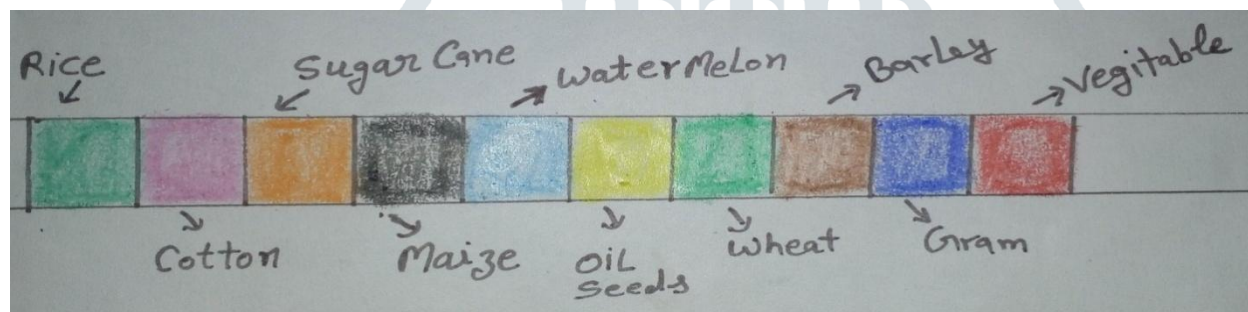 Rice
Sugar Cane
Water Melon
Barley
Vegitable
Cotton
Maize
Oil
Seeds
Wheat
Gram